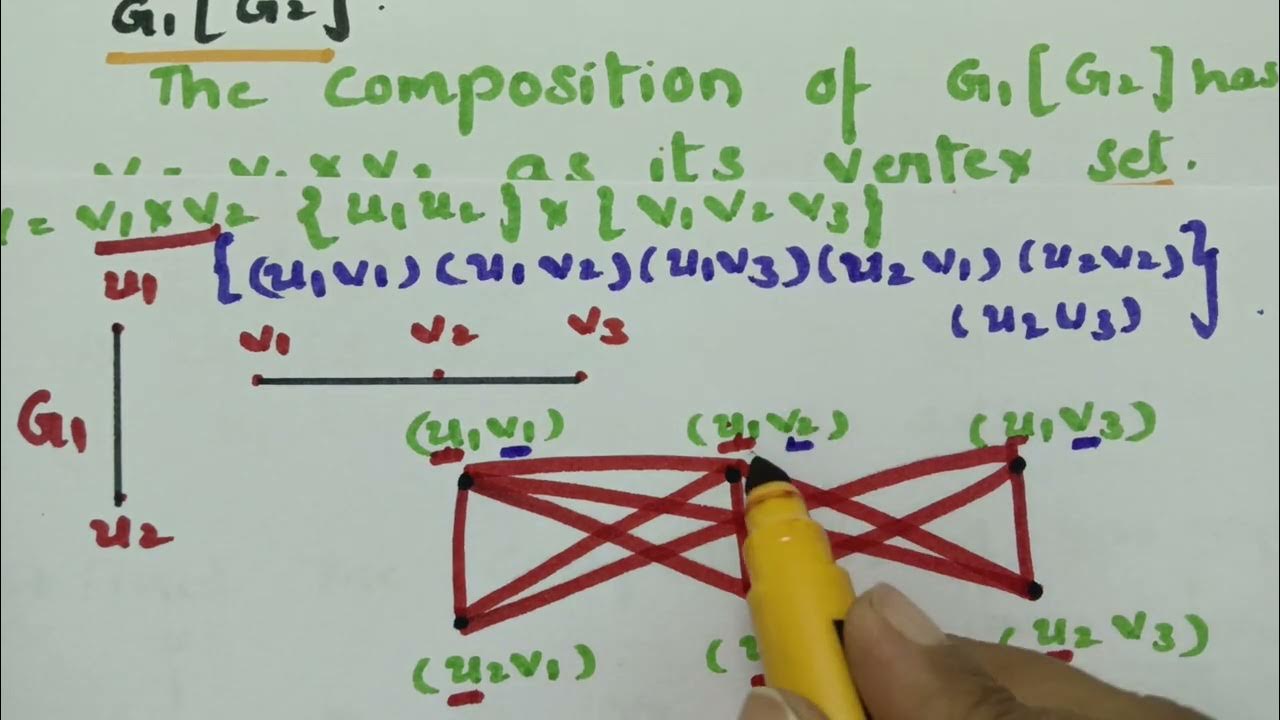 G1[G2].
The composition of G1[G2] has
V = V1×V2 as its vertex set.
V1×V2 {u1u2}×{v1v2v3}
{(u1v1)(u1v2)(u1v3)(u2v1)(u2v2)
(u2v3)}
u1
v1 v2 v3
G1
(u1v1) (u1v2) (u1v3)
u2
(u2v1) (u2v3)